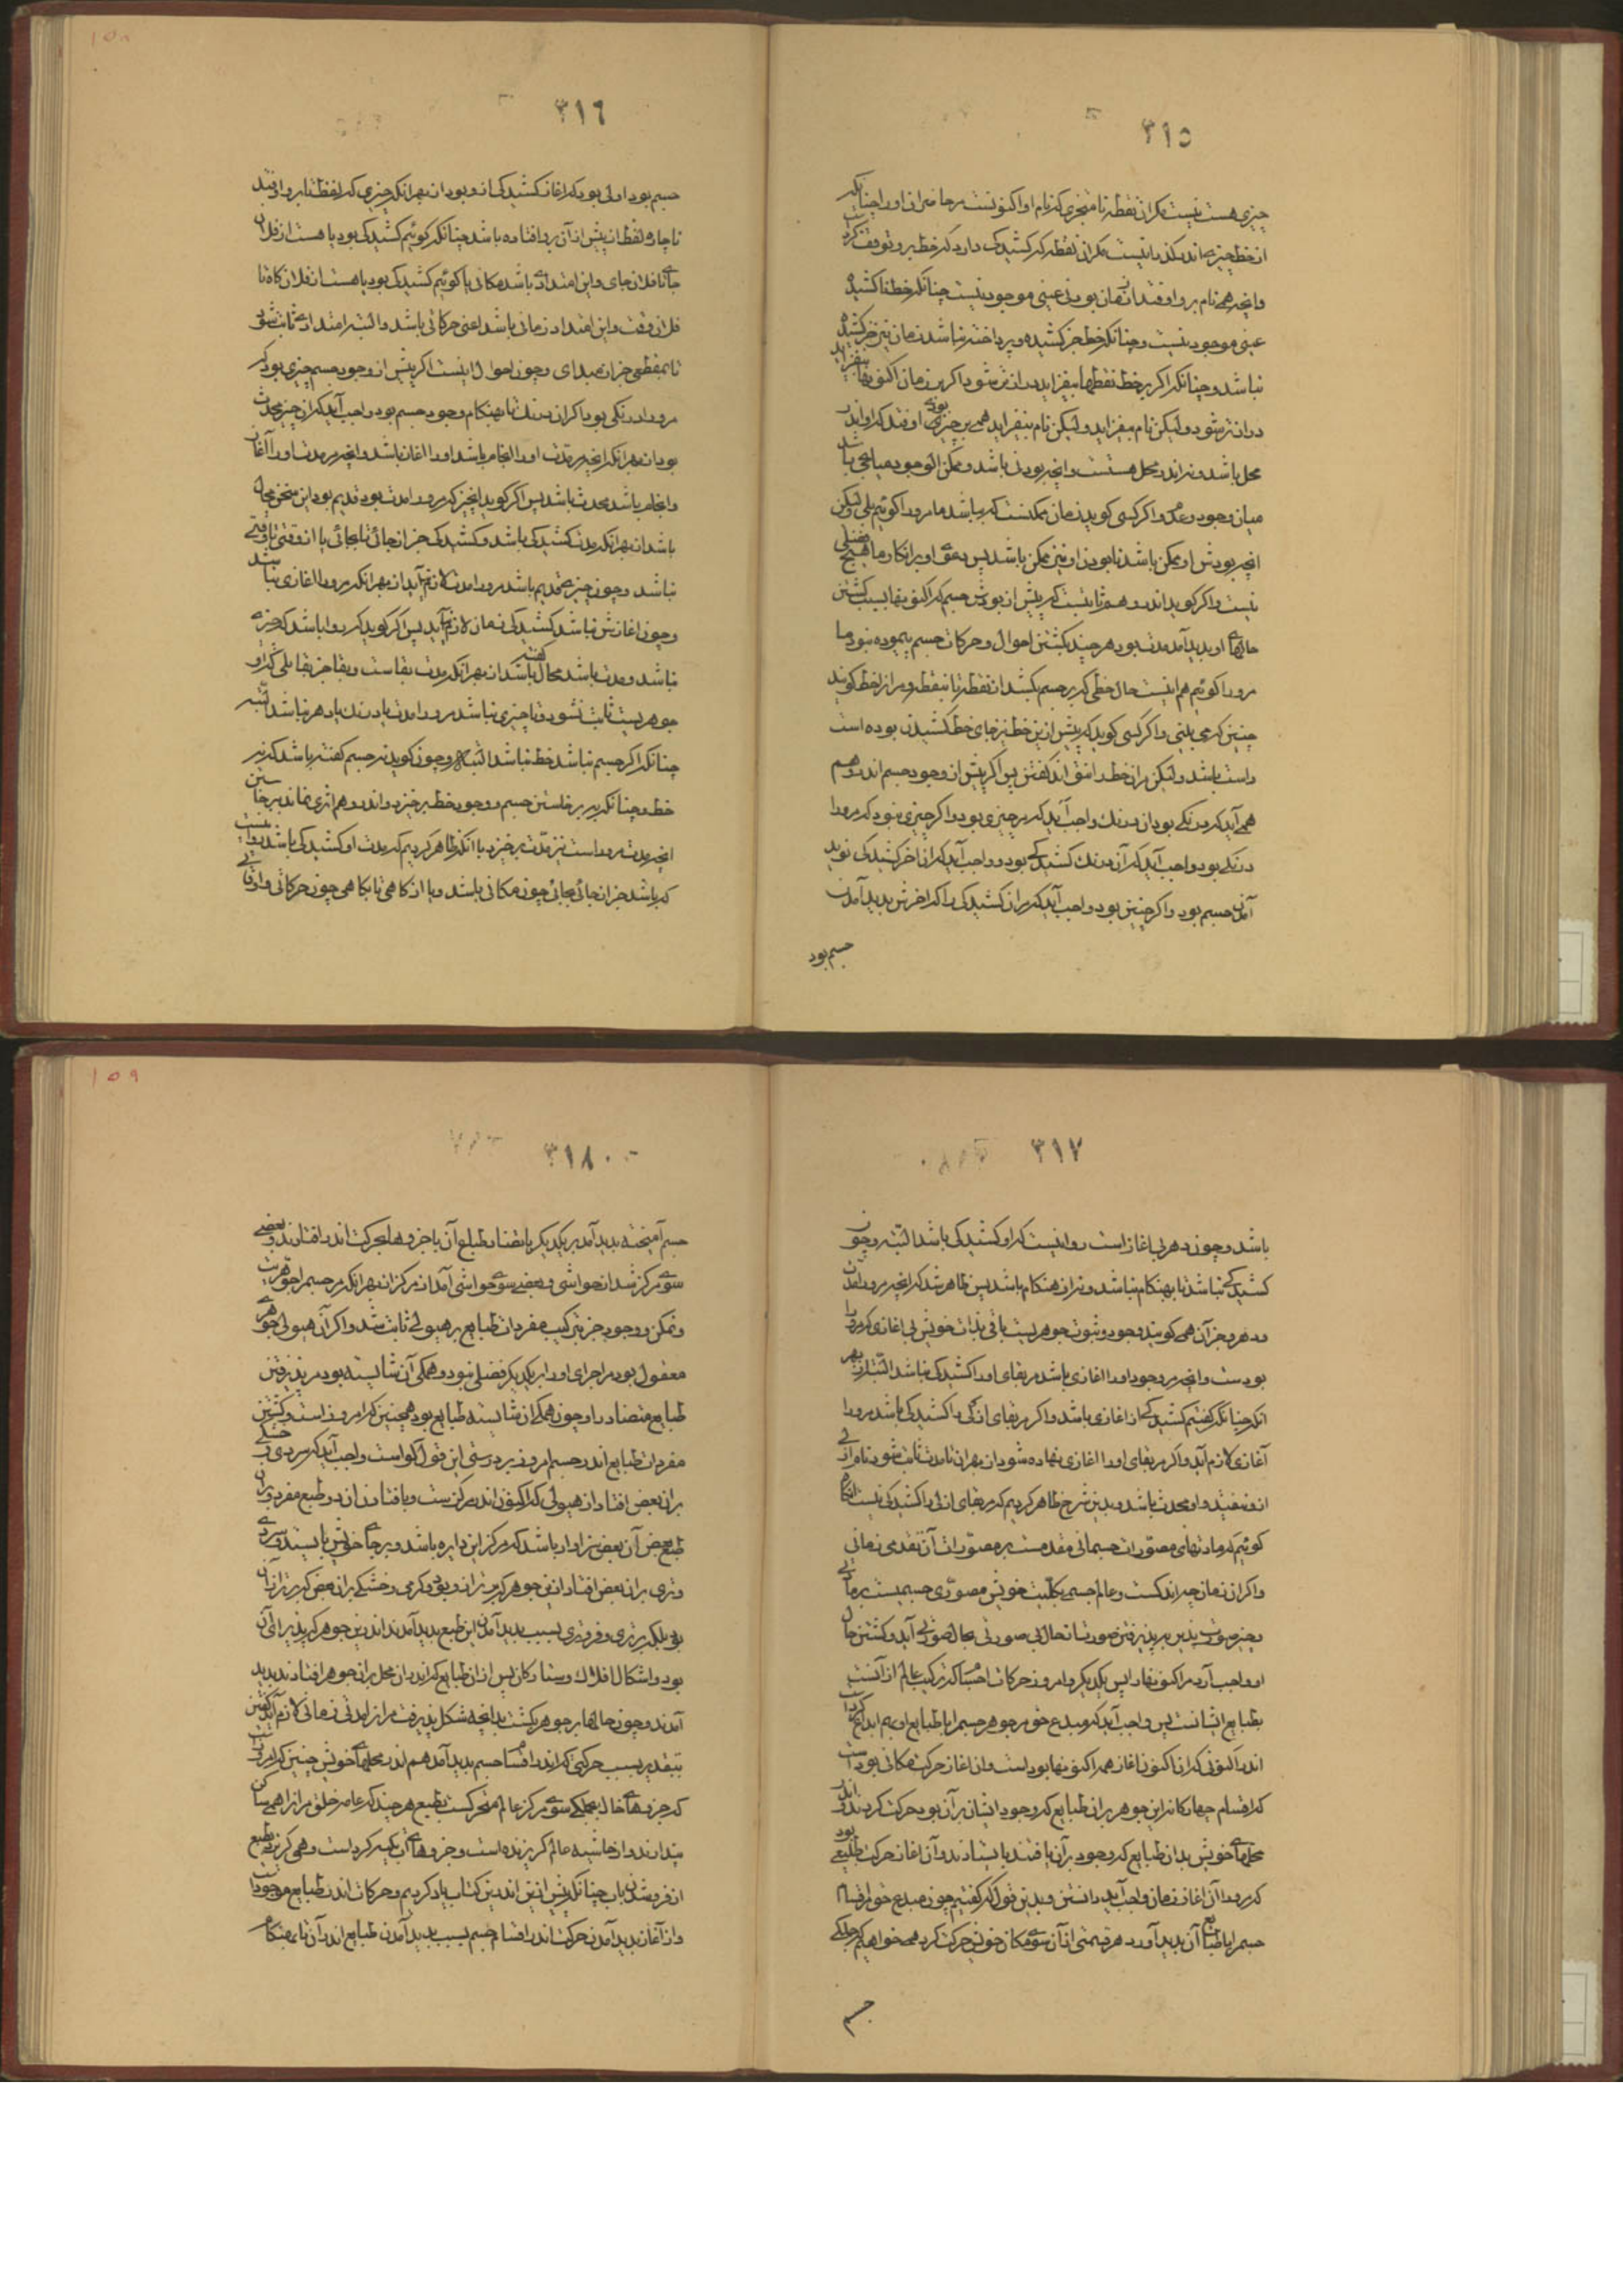 ٣١٥
چیزی هست نیست مگر آن نقطه نامتجزی که نام او اکنونست مر حاضران او را چنانکه
از خط چیزی مانده نیست مگر آن نقطه که کشیدگی دارد که خط برو توقف کرد
وانچه همی نام برو اوفتد از زمان بودنی عینی موجود نیست چنانکه خط ناکشیده
عینی موجود نیست و چنانکه خط جز کشیده و پرداخته نباشد زمان نیز جز کشیده
نباشد و چنانکه اگر بر خط نقطها بیفزاید درازتر شود اگر بر زمان اکنونها بیفزاید
درازتر شود ولیکن نام بیفزاید ولیکن نام بیفزاید همی بر چیزی بودنی اوفتد که او اندر
محل باشد و نه اندر محل هستست وانچه بودنی باشد و ممکن الوجود میانجی باشد
میان وجود و عدم و اگر کسی گوید زمان ممکنست که باشد ما مرورا گوئیم بلی ولیکن
انچه بودش او ممکن باشد نابودن او نیز ممکن باشد پس دعوی او بر انکار ما هیچ فضلی
نیست و اگر گوید اندر وهم ثابتست که پیش از بودش جسم که اکنونها بسبب گشتن
حالهای او پدید آمد مدت بود هر چند بگشتن احوال و حرکات جسم پیموده نبود ما
مرورا گوئیم هم اینست حال خطی که بر جسم بکشد از نقطه تا بنقطه و مر آنرا خط گویند
چنین که می بینی و اگر کسی گوید که پیش ازین خط نیز جای خط کشیدن بوده است
راست باشد ولیکن مر آن خط را نتواند گفتن پس اگر پیش از وجود جسم اندر وهم
همی آید که درنگی بود آن درنگ واجب آید که مر چیزی بود و اگر چیزی نبود که مرورا
درنگی بود واجب آید که آن درنگ کشیدگی بود و واجب آید که از آخر کشیدگی نوپدید
آمدن جسم بود و اگر چنین بود واجب آید که مر آن کشیدگی را که آخرش پدید آمدن
جسم بود
٣١٦
جسم بود اولی بود که آغاز کشیدگی ازو بود از بهر آنکه چیزی که لفظ تا برو اوفتد
ناچاره لفظ از پیش از آن برو افتاده باشد چنانکه گوئیم کشیدگی بود یا هست از فلان
جای تا فلان جای و این امتدادی باشد مکانی یا گوئیم کشیدگی بود یا هست از فلان گاه تا
فلان وقت و این امتداد زمانی باشد اعنی حرکاتی باشد و البته امتدادی ثابت نشود
تا بمقطعی جز از مبدای و چون احوال اینست اگر پیش از وجود جسم چیزی بود که
مرورا درنگی بود اگر آن درنگ تا بهنگام وجود جسم بود واجب آید که آن چیز محدث
بود از بهر آنکه انچه مر مدت او را انجام باشد او را آغاز باشد وانچه مر مدت او را آغاز
و انجام باشد محدث باشد پس اگر گوید انچیز که مرورا مدت بود قدیم بود این سخن محال
باشد از بهر آنکه مدت کشیدگی باشد و کشیدگی جز از جائی تا بجائی یا از وقتی تا وقتی
نباشد و چون چیزی قدیم باشد مرورا مدت لازم نیاید از بهر آنکه مرورا آغازی نباشد
و چون آغازش نباشد کشیدگی زمان لازم نیاید پس اگر گوید که روا باشد که چیزی
نباشد و مدت باشد محال گفته باشد از بهر آنکه مدت بقاست و بقا جز بقا بلی که او
جوهریست ثابت نشود و تا چیزی نباشد مرورا مدت یا درنگ یا دهر نباشد البته
چنانکه اگر جسم نباشد خط نباشد البته و چون گوید نه جسم گفته باشد که نه
خط و چنانکه ببرخاستن جسم وجود خط برخیزد و اندر وهم اثری نماند ببرخاستن
انچه مدت مروراست نیز مدت برخیزد با آنکه ظاهر کردیم که مدت او کشیدگی باشد روا نیست
که باشد جز از جائی بجائی چون مکانی باشد و یا از گاهی تا بگاهی چون حرکاتی و اوقاتی
٣١٧
باشد و چون دهر بی آغاز است روا نیست که او کشیدگی باشد البته و چون
کشیدگی نباشد تا بهنگام نباشد و نه از هنگام باشد پس ظاهر شد که انچه مرورا مدت
و دهر و جز آن همی گویند وجود و ثبوت جوهریست باقی بذات خویش بی آغازی که مرورا
بودست وانچه مر وجود او را آغازی باشد مر بقای او را کشیدگی نباشد البته از بهر
آنکه چنانکه گفتیم کشیدگی از آغازی باشد و اگر مر بقای ازلی را کشیدگی باشد مرورا
آغازی لازم آید و اگر مر بقای او را آغازی نهاده شود از بهر آن تا مدت ثابت شود نام ازلی
ازو بیفتد و او محدث باشد و بدین شرح ظاهر کردیم که مر بقای ازلی را کشیدگی نیست آنگاه
گوئیم که مادتهای مصورات جسمانی مقدمست بر مصورات آن تقدمی زمانی
و اگر آن زمان چه اندکست و عالم جسم بکلیت خویش مصوری جسمیست بر مادتی
و چیز صورت پذیر بپذیرفتن صورت از حال بی صورتی بحال صورتی آید و گشتن حال
او واجب آرد مر اکنونها را پس یکدیگر و امروز حرکات اجسام که ترکیب عالم از آنست
بطبایع ایشانست پس واجب آید که مبدع حق مر جوهر جسم را با طبایع او بهم ابداع کردست
اندر اکنونی که از آن اکنون آغاز همه اکنونها بودست و آن آغاز حرکت مکانی بودست
که اقسام چهارگانه این جوهر بر آن طبایع که وجود ایشان بر آن بود حرکت کردند اندر
محلهای خویش بدان طبایع که وجود بر آن یافتند بایستادند و آن آغاز حرکت طبیعی بود
که مرورا آن آغاز زمان واجب آید دانستن و بدین قول که گفتیم چون مبدع حق مر اقسام
جسم را با طبایع آن پدید آورد هر قسمتی از آن سوی مکان خویش حرکت کرد همی خواهیم که جملگی
جسم
٣١٨
جسم آمیخته پدید آمد بر یکدیگر یا بتضاد طبایع آن یا جزوها بحرکت اندر افتادند و بعضی
سوی مرکز شد از حواشی و بعضی سوی حواشی آمد از مرکز از بهر آنکه مر جسم را جوهریت
و تمکن و وجود جز بترکیب مفردات طبایع بر هیولی ثابت نشد و اگر آن هیولی جوهری
معقول بود مر اجزای او را بر یکدیگر فضلی نبود و همگی آن شایسته بود مر پذیرفتن
طبایع متضاد را و چون همگی آن شایسته طبایع بود همچنین که امروز است و گشتن
مفردات طبایع اندر جسم امروز بر درستی این قول گواست واجب آید که سردی و خشکی
بر آن بعض افتاد از هیولی که اکنون اندر مرکزست و بافتادن آن دو طبع مفرد بر آن
طبع بعض آن بعض سزاوار باشد که مرکز این دایره باشد و بر جای خویش بایستد و سردی
و تری بر آن بعض افتاد ازین جوهر که برتر از او بود و گرمی و خشکی بر آن بعض که برتر از آن
بود بلکه برتری و فروتری بسبب پدید آمدن این طبع پدید آمدند اندرین جوهر که پذیرای آن
بود و اشکال افلاک و ستارگان پس از آن طبایع که اندر آن محل بر آن جوهر افتادند پدید
آمدند و چون حالها بر جوهر بگشت بدانچه شکل پذیرفت مر از ابدنی زمانی لازم آید گفتن
بتقدیر بسبب حرکتی که اندر اقسام جسم پدید آمد هم اندر محلهای خویش چنین که امروزست
که جزوهای خاک بجملگی سوی مرکز عالم متحرکست بطبع هر چند که عامه خلق مر آنرا همی ساکن
پندارند و از حاشیه عالم گریزنده است و جزوهای آب تکیه کردست و همی گریزد بطبع
از فروشدن باب چنانکه پیش ازین اندرین کتاب یاد کردیم و حرکات اندر طبایع موجودست
و از آغاز پدید آمدن حرکت اندر اقسام جسم بسبب پدید آمدن طبایع اندر آن تا بهنگام